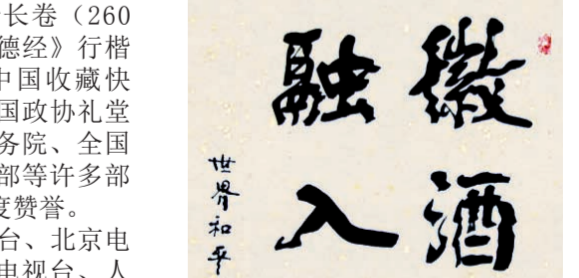 长卷（260
德经》行楷
中国收藏快
国政协礼堂
务院、全国
部等许多部
度赞誉。
台、北京电
电视台、人
徽酒
融入
世界和平